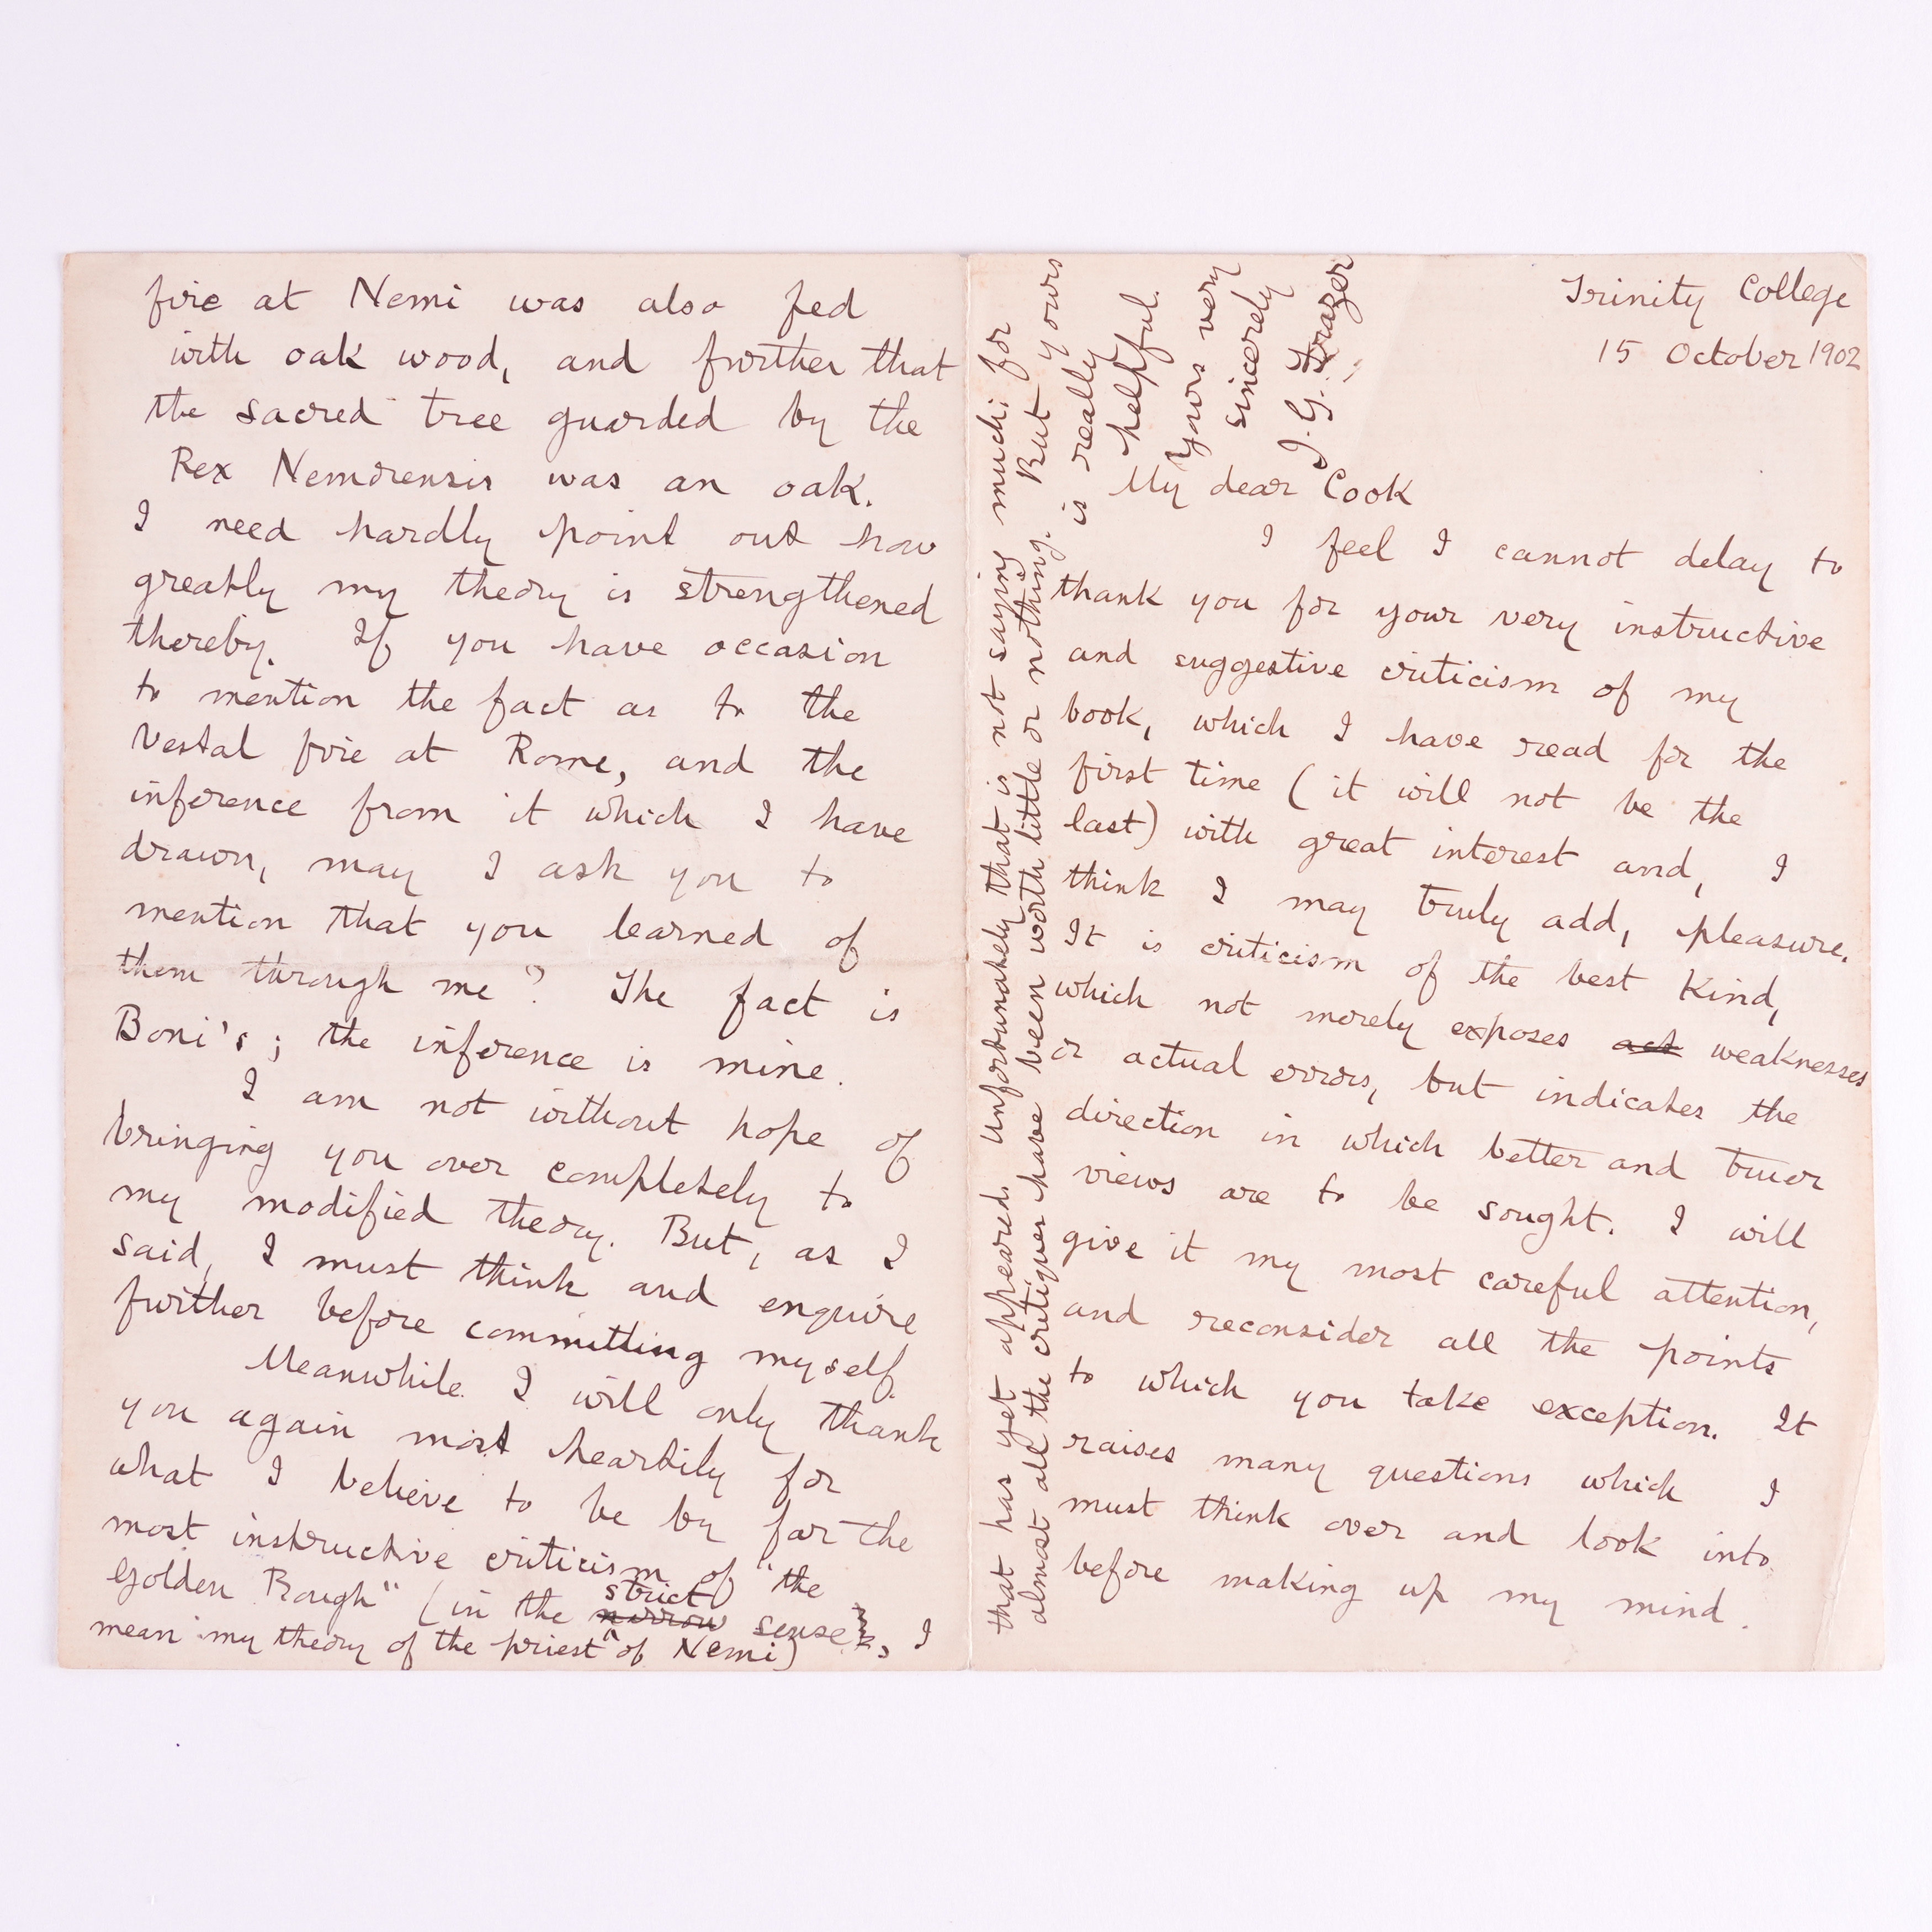 Trinity College
15 October 1902
My dear Cook
I feel I cannot delay to
thank you for your very instructive
and suggestive criticism of my
book, which I have read for the
first time (it will not be the
last) with great interest and, I
think I may truly add, pleasure.
It is criticism of the best kind,
which not merely exposes act weaknesses
or actual errors, but indicates the
direction in which better and truer
views are to be sought. I will
give it my most careful attention,
and reconsider all the points
to which you take exception. It
raises many questions which I
must think over and look into
before making up my mind.
fire at Nemi was also fed
with oak wood, and further that
the sacred tree guarded by the
Rex Nemorensis was an oak.
I need hardly point out how
greatly my theory is strengthened
thereby. If you have occasion
to mention the fact as to the
Vestal fire at Rome, and the
inference from it which I have
drawn, may I ask you to
mention that you learned of
them through me? The fact is
Boni's; the inference is mine.
I am not without hope of
bringing you over completely to
my modified theory. But, as I
said, I must think and enquire
further before committing myself.
Meanwhile I will only thank
you again most heartily for
what I believe to be by far the
most instructive criticism of "the
Golden Bough" (in the narrow strict sense, I
mean my theory of the priest of Nemi)
that has yet appeared. Unfortunately that is not saying much; for
almost all the critiques have been worth little or nothing. But yours
is really
helpful.
Yours very
sincerely
J. G. Frazer